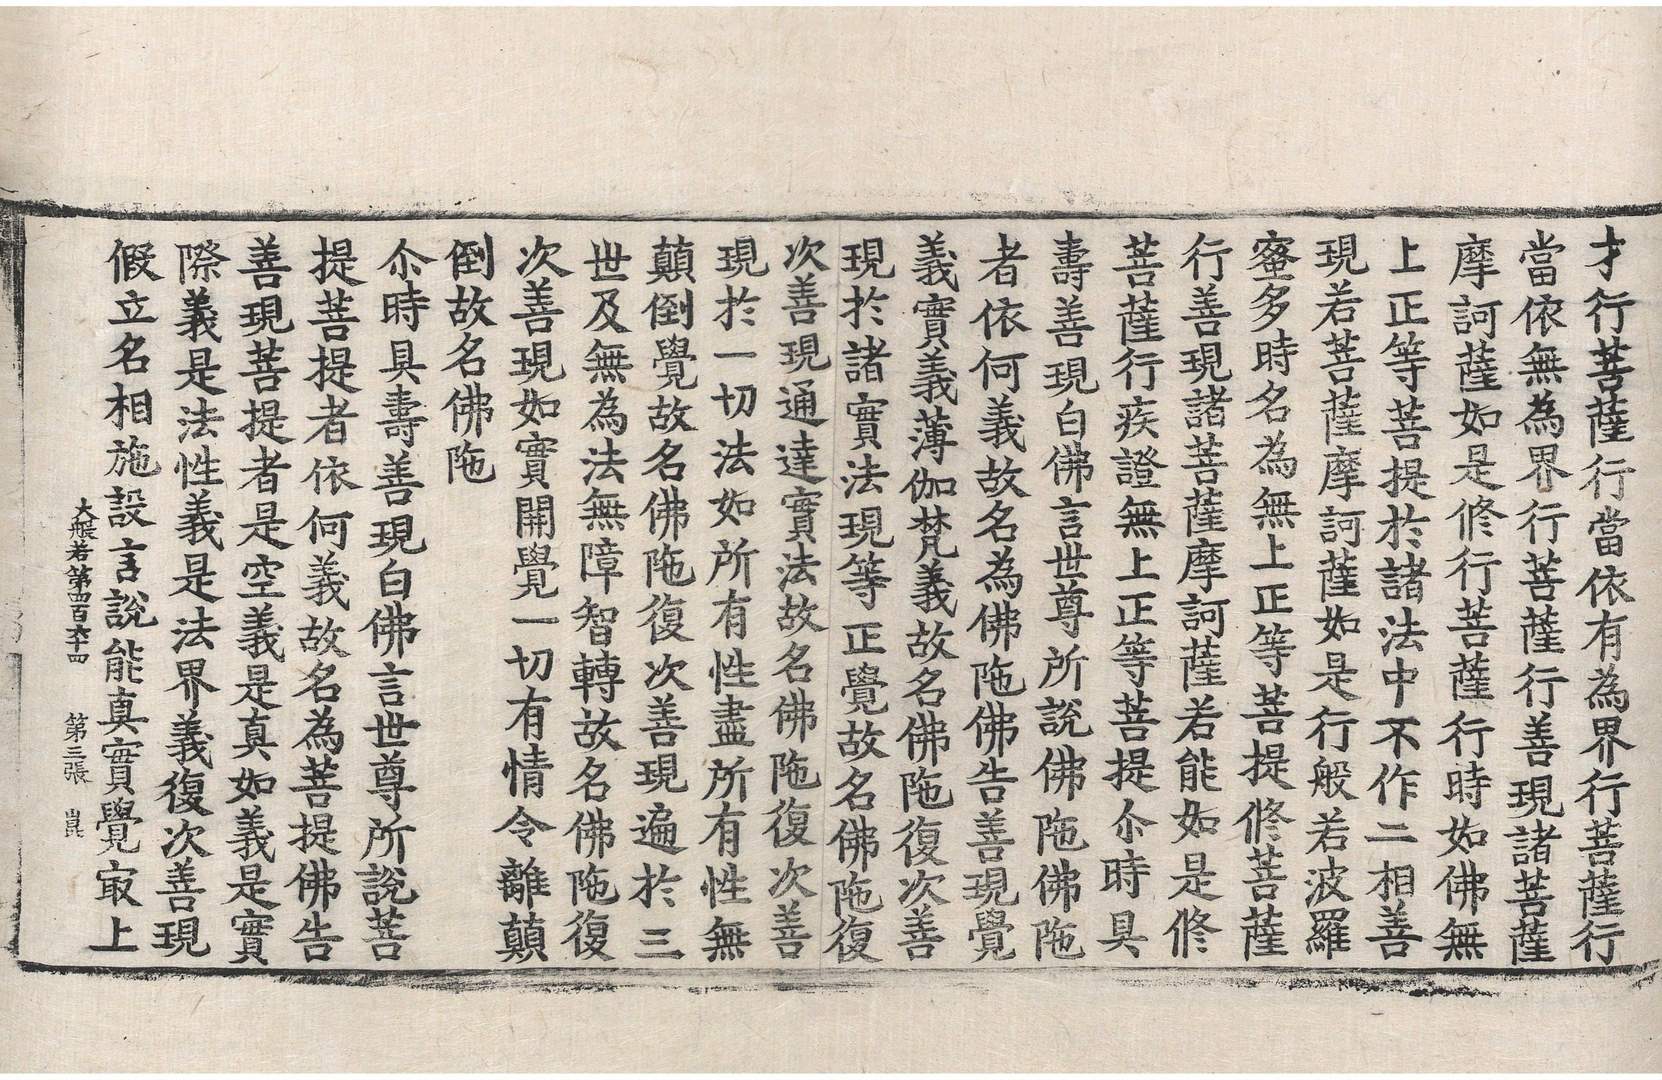 才行菩薩行行當依有為界行菩薩行
當依無為界行菩薩行善現諸菩薩
摩訶薩如是修行菩薩行時如佛無
上正等菩提於諸法中不作二相善
現若菩薩摩訶薩如是行般若波羅
蜜多時名為無上正等菩提修菩薩
行善現諸菩薩摩訶薩若能如是修
菩薩行疾證無上正等菩提尒時具
壽善現白佛言世尊所說佛陁佛陁
者依何義故名為佛陁佛告善現覺
義實義薄伽梵義故名佛陁復次善
現於諸實法現等正覺故名佛陁復
次善現通達實法故名佛陁復次善
現於一切法如所有性盡所有性無
顛倒覺故名佛陁復次善現遍於三
世及無為法無障智轉故名佛陁復
次善現如實開覺一切有情令離顛
倒故名佛陁
尒時具壽善現白佛言世尊所說菩
提菩提者依何義故名為菩提佛告
善現菩提者是空義是真如義是實
際義是法性義是法界義復次善現
假立名相施設言說能真實覺㝡上
大般若第四百六十四 第三張 崑